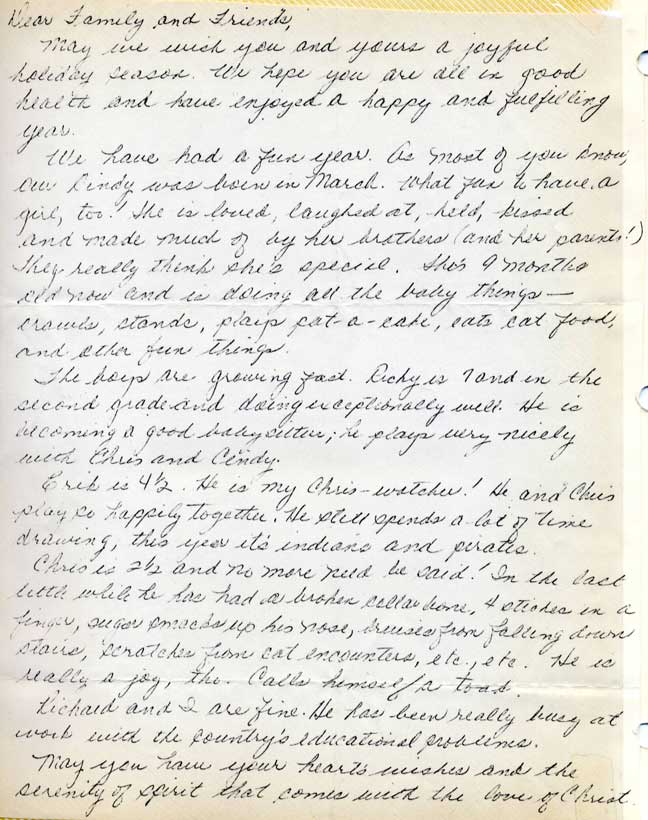 Dear Family and Friends,
May we wish you and yours a joyful
holiday season. We hope you are all in good
health and have enjoyed a happy and fulfilling
year.
We have had a fun year. As most of you know,
our Cindy was born in March. What fun to have a
girl, too! She is loved, laughed at, held, kissed
and made much of by her brothers (and her parents!)
They really think she's special. She's 9 months
old now and is doing all the baby things—
crawls, stands, plays pat-a-cake, eats cat food,
and other fun things.
The boys are growing fast. Richy is 7 and in the
second grade and doing exceptionally well. He is
becoming a good babysitter; he plays very nicely
with Chris and Cindy.
Erik is 4½. He is my Chris-watcher! He and Chris
play so happily together. He still spends a lot of time
drawing, this year it's indians and pirates.
Chris is 2½ and no more need be said! In the last
little while he has had a broken collar bone, 4 stiches in a
finger, sugar smacks up his nose, bruises from falling down
stairs, scratches from cat encounters, etc., etc. He is
really a joy, tho. Calls himself a toad.
Richard and I are fine. He has been really busy at
work with the country's educational problems.
May you have your heart's wishes and the
serenity of spirit that comes with the love of Christ.